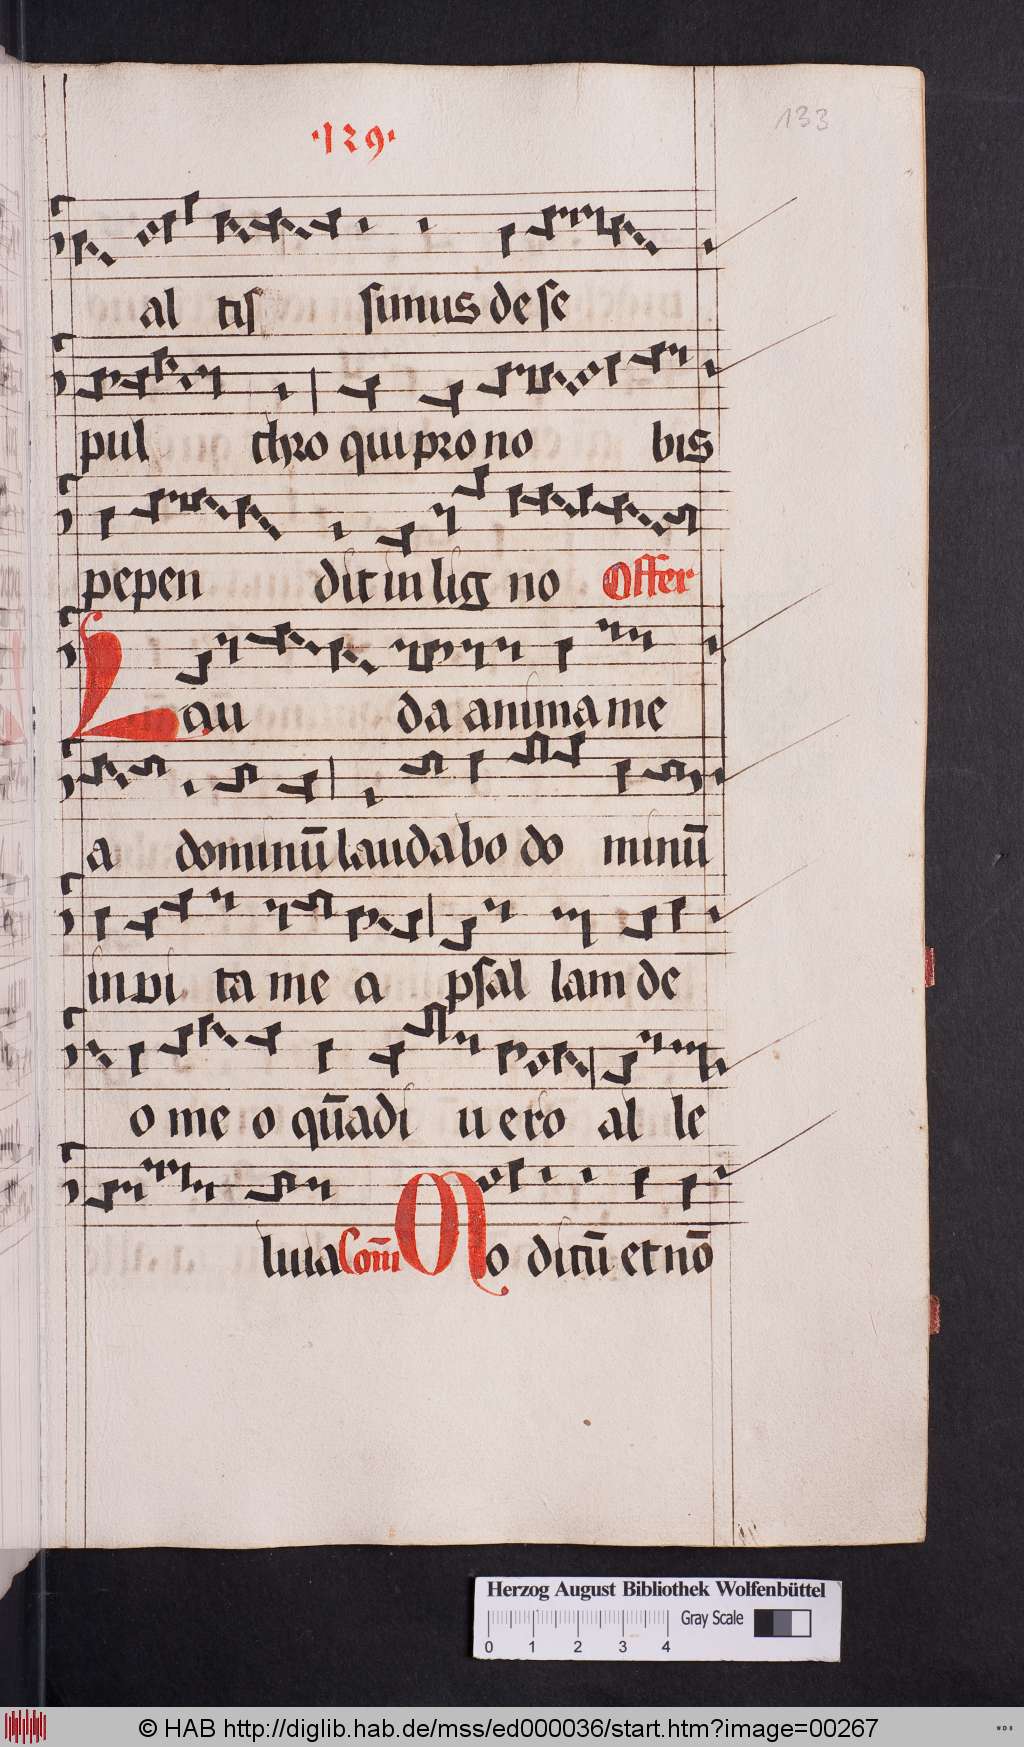 ·129·
133
al tis simus de se
pul chro qui pro no bis
pepen dit in lig no Offer
Lau da anima me
a dominū laudabo do minū
in vi ta me a psal lam de
o me o qūadi u ero al le
luia Com̄ Mo dicū et nō
Herzog August Bibliothek Wolfenbüttel
0 1 2 3 4 Gray Scale
© HAB http://diglib.hab.de/mss/ed000036/start.htm?image=00267